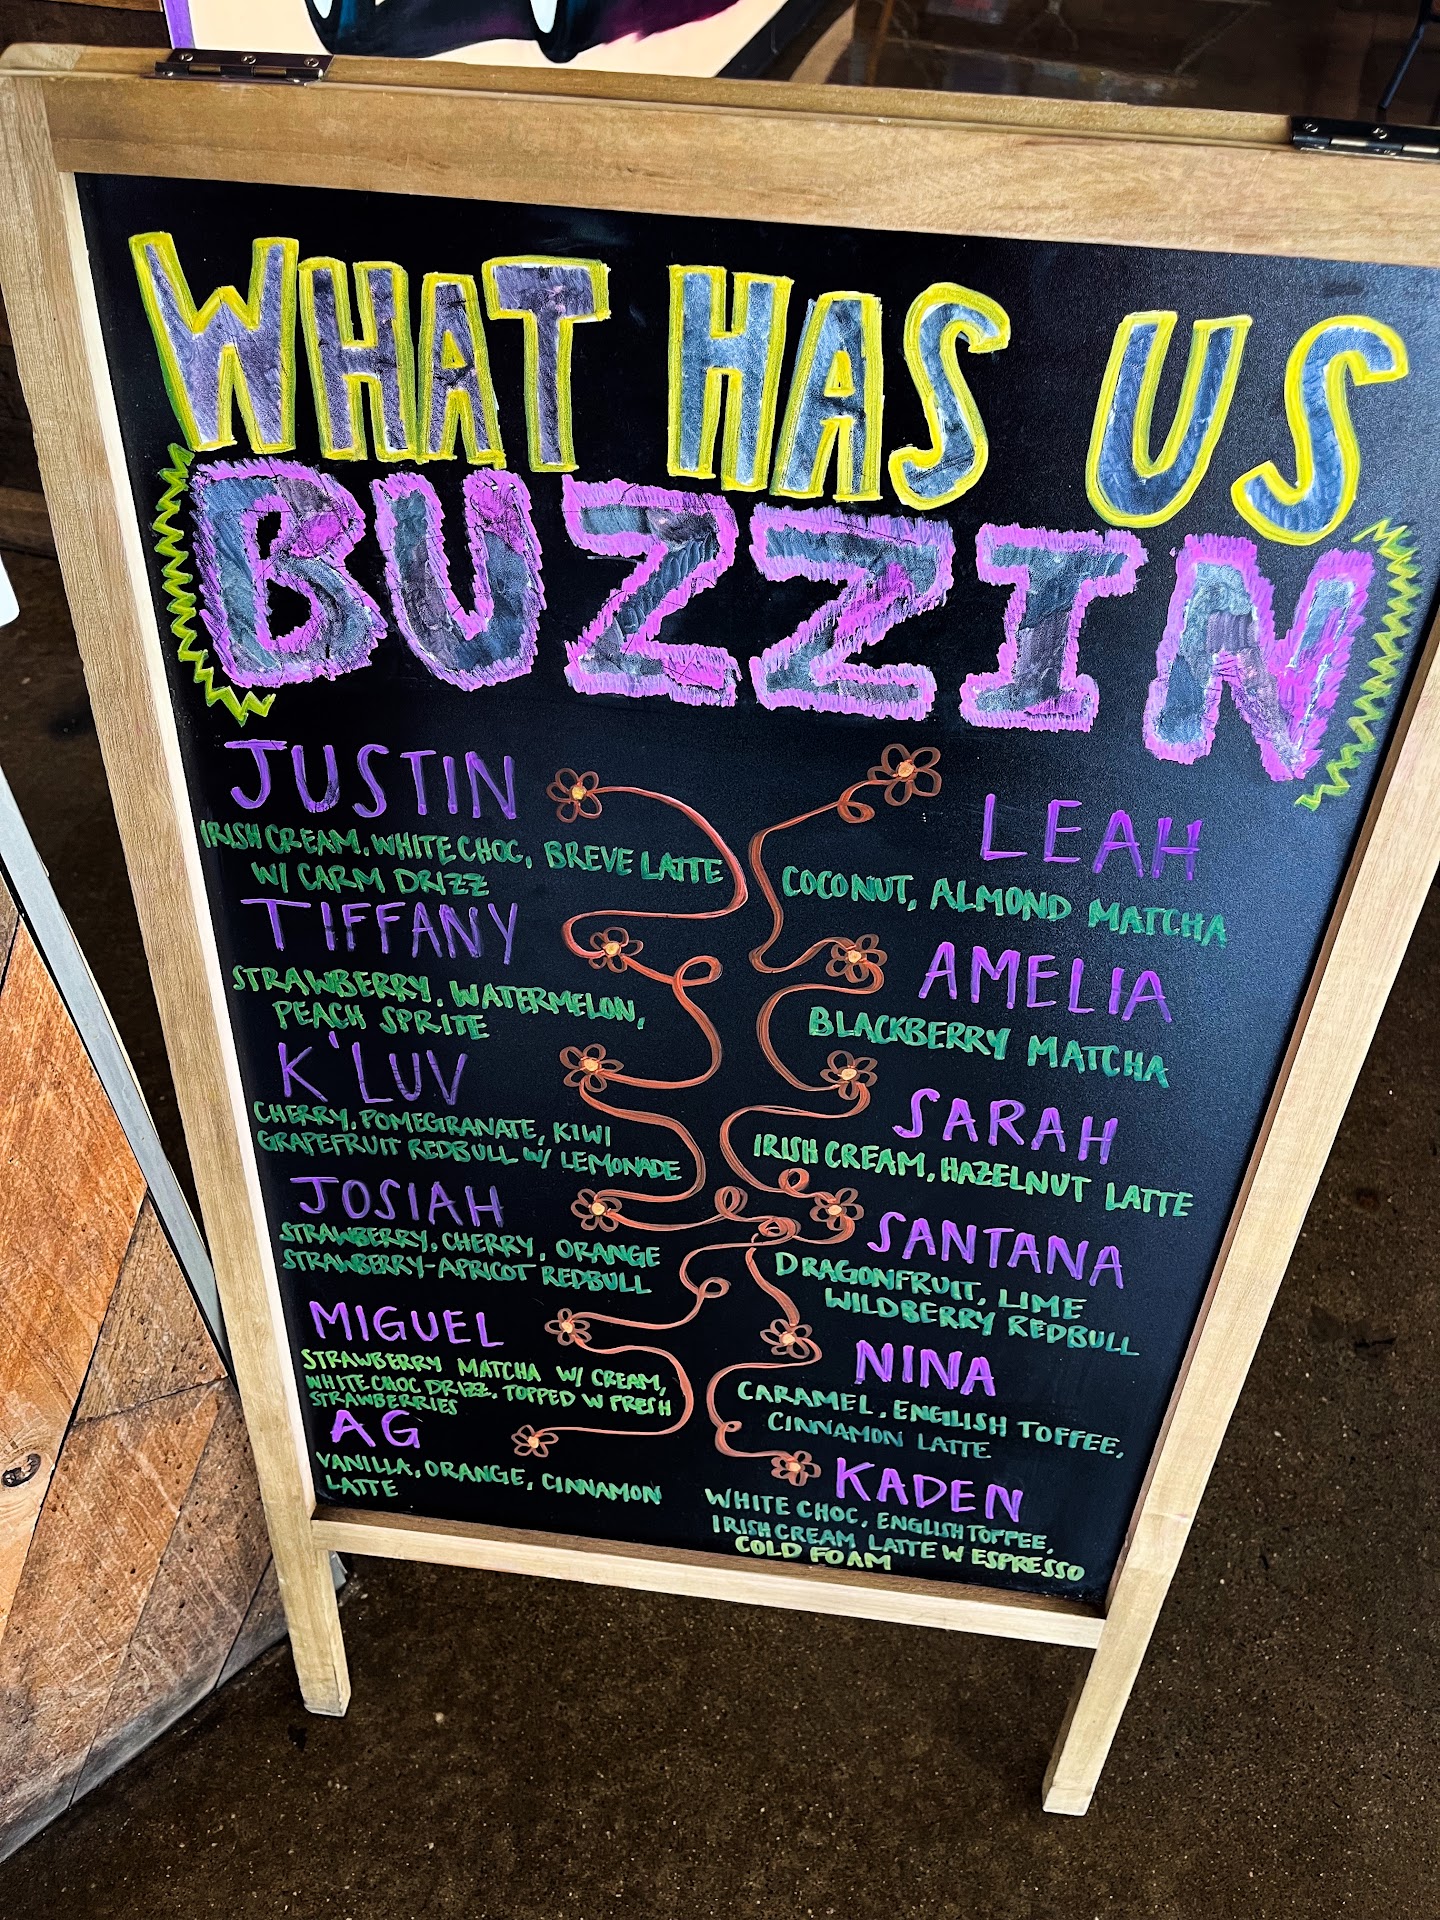 WHAT HAS US
BUZZIN
JUSTIN
IRISH CREAM, WHITE CHOC, BREVE LATTE
W/ CARM DRIZZ
TIFFANY
STRAWBERRY, WATERMELON,
PEACH SPRITE
K'LUV
CHERRY, POMEGRANATE, KIWI
GRAPEFRUIT REDBULL W/ LEMONADE
JOSIAH
STRAWBERRY, CHERRY, ORANGE
STRAWBERRY-APRICOT REDBULL
MIGUEL
STRAWBERRY MATCHA W/ CREAM,
WHITE CHOC DRIZZ, TOPPED W FRESH
STRAWBERRIES
AG
VANILLA, ORANGE, CINNAMON
LATTE
LEAH
COCONUT, ALMOND MATCHA
AMELIA
BLACKBERRY MATCHA
SARAH
IRISH CREAM, HAZELNUT LATTE
SANTANA
DRAGONFRUIT, LIME
WILDBERRY REDBULL
NINA
CARAMEL, ENGLISH TOFFEE,
CINNAMON LATTE
KADEN
WHITE CHOC, ENGLISH TOFFEE,
IRISH CREAM LATTE W ESPRESSO
COLD FOAM